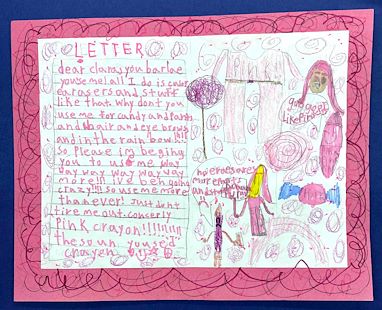 LETTER
dear claras you barlae
youse me! all I do is culer
earasers and stuff
like that. why dont you
use me for candy and pants
and hair and eye brows
and in the rain bow. !!!!
so Please im beging
you to use me way
way way way way way
more!!! ive beh going
crazy!!!! so use me more
than ever! Just dont
tire me out. concerly
Pink crayon!!!!!!!!
the so un youse'd
crayen
goo goos
like Pink
heroes are
more
and